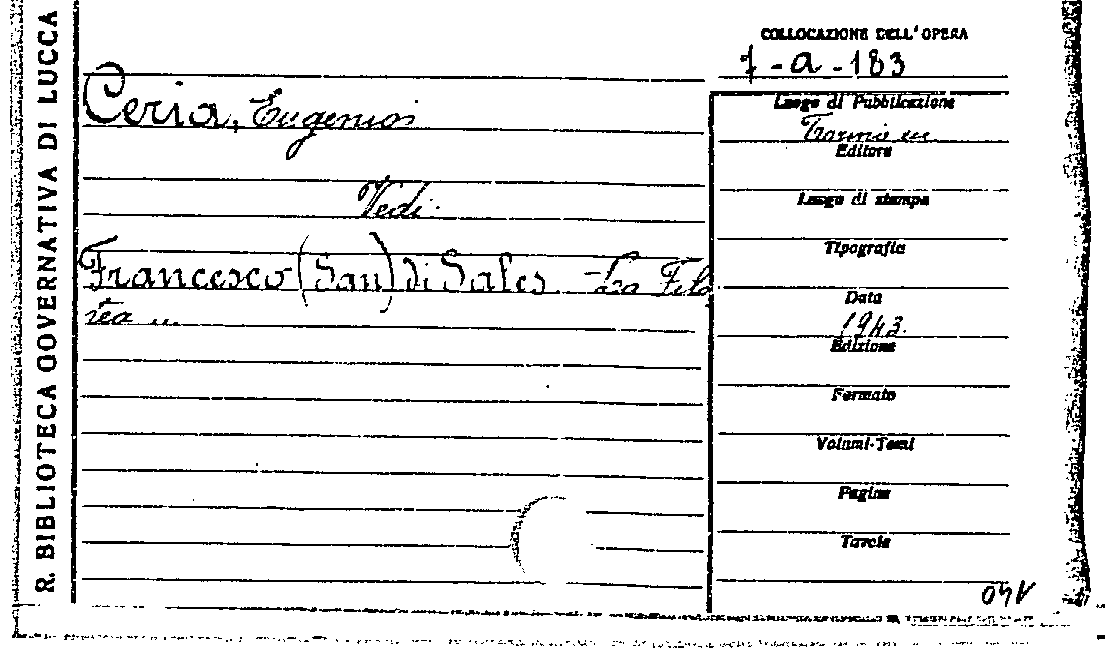 R. BIBLIOTECA GOVERNATIVA DI LUCCA
COLLOCAZIONE DELL'OPERA
7-a-183
Ceria, Eugenio
Vedi:
Francesco (San) di Sales - La Filo
tea ...
Luogo di Pubblicazione
Torino
Editore
Luogo di stampa
Tipografia
Data
1943.
Edizione
Formato
Volumi-Tomi
Pagine
Tavole